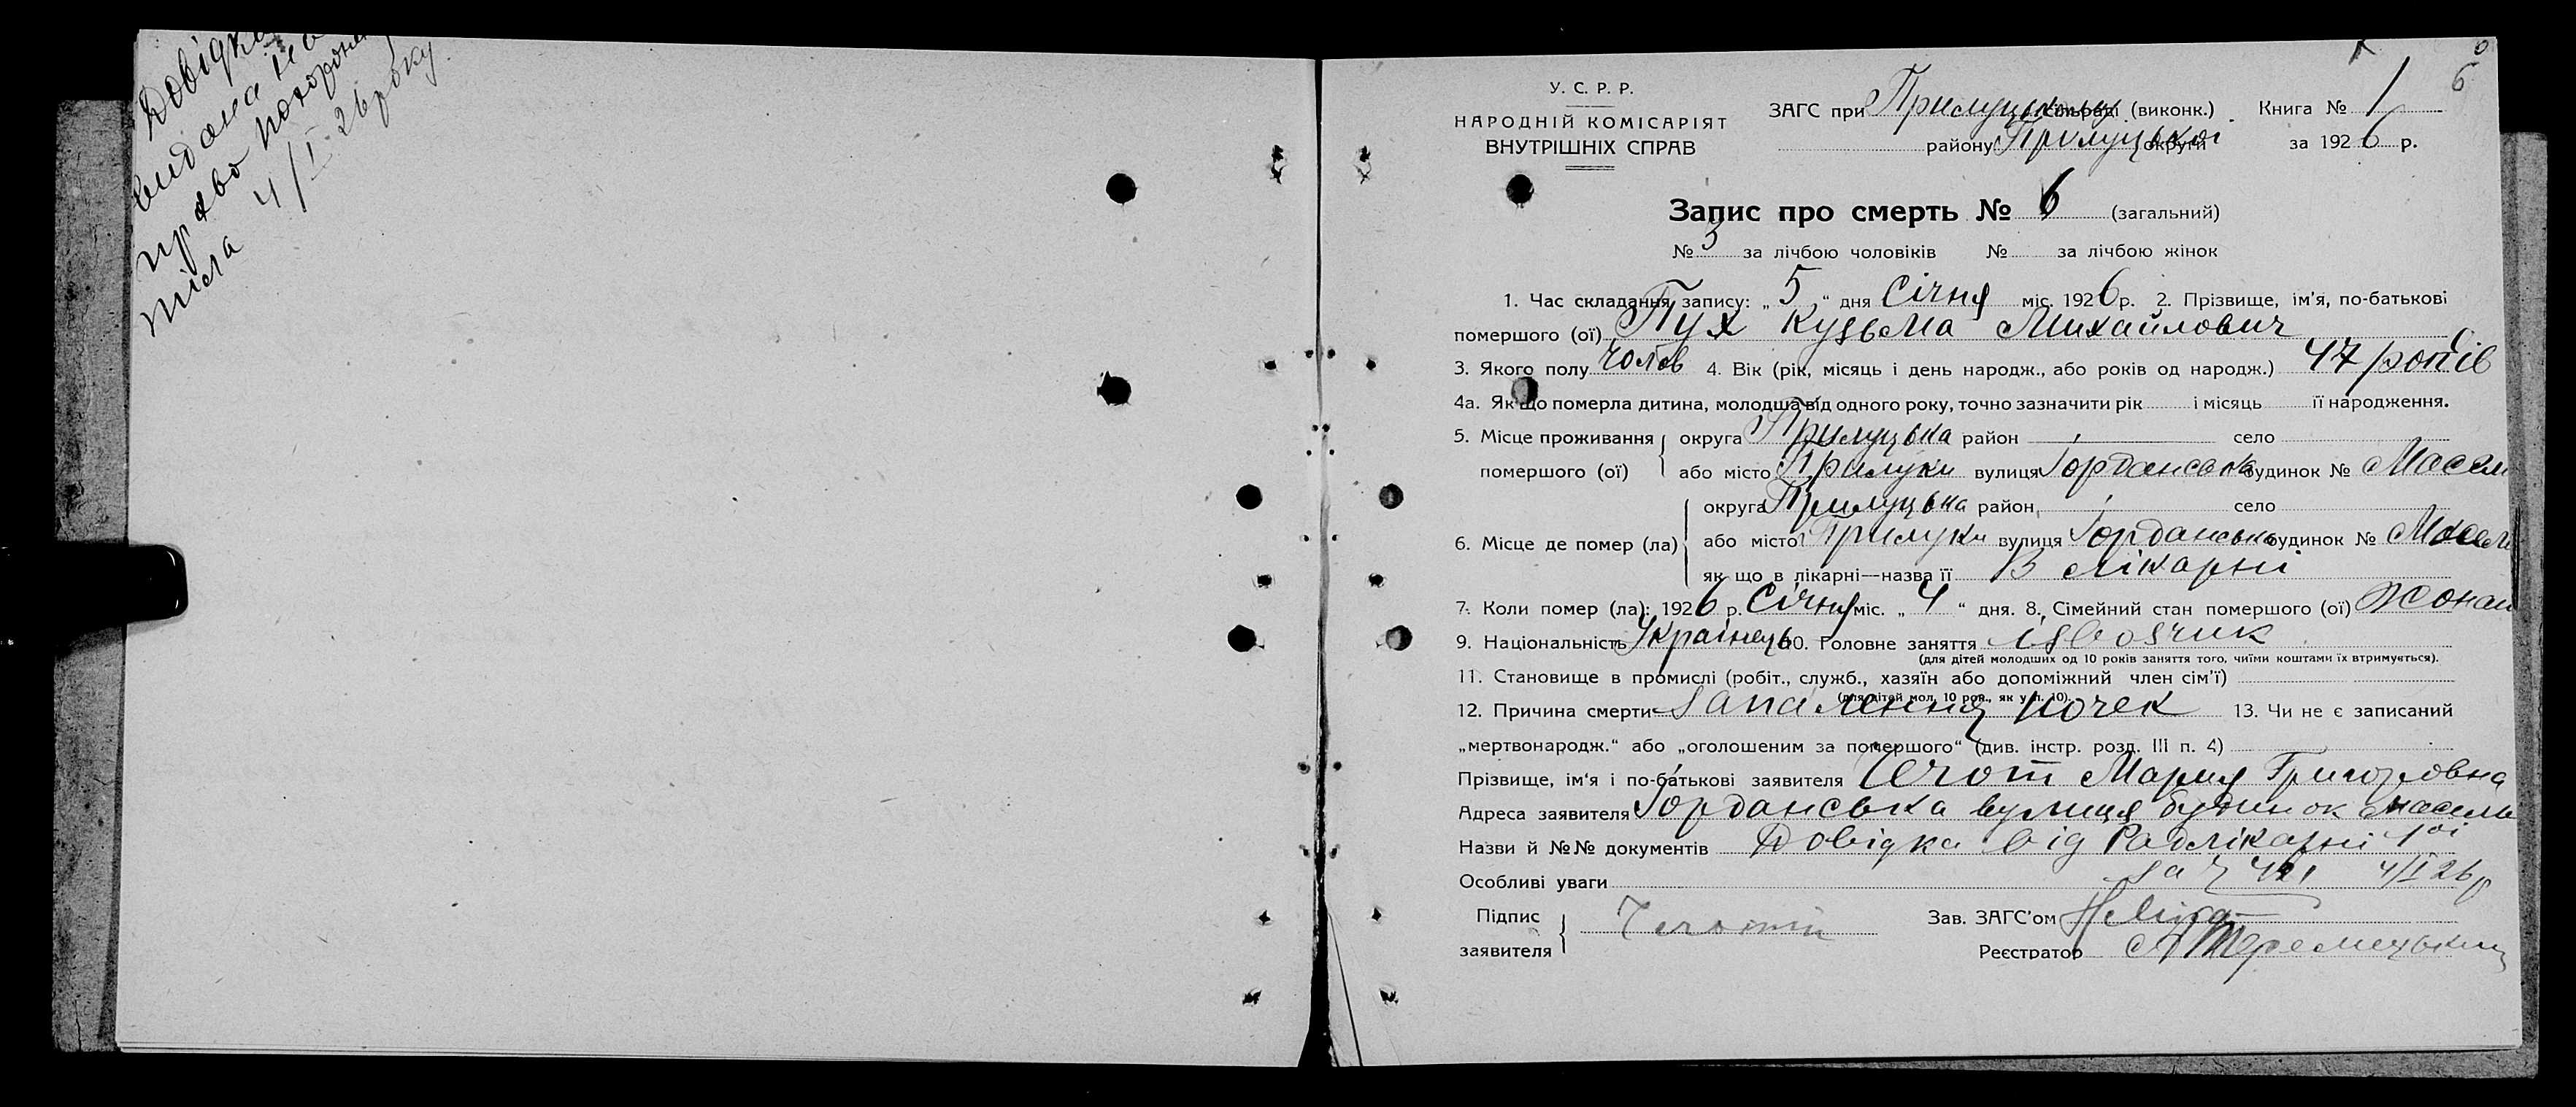 Довідка
видана на
право похорону
тіла 4/I 26 року.
6
У. С. Р. Р.
НАРОДНІЙ КОМІСАРІЯТ
ВНУТРІШНІХ СПРАВ
ЗАГС при Прилуцькому сільраді (виконк.) Книга № 1
району Прилуцької округи за 1926 р.
Запис про смерть № 6 (загальний)
№ 3 за лічбою чоловіків № за лічбою жінок
1. Час складання запису: „5“ дня Січня міс. 1926 р. 2. Прізвище, ім'я, по-батькові
помершого (ої) Пух Кузьма Михайлович
3. Якого полу чолов 4. Вік (рік, місяць і день народж., або років од народж.) 47 років
4а. Як що померла дитина, молодша від одного року, точно зазначити рік і місяць її народження.
5. Місце проживання округа Прилуцька район село
помершого (ої) або місто Прилуки вулиця Іорданська будинок №
округа Прилуцька район село
6. Місце де помер (ла) або місто Прилуки вулиця Іорданська будинок №
як що в лікарні—назва її В лікарні
7. Коли помер (ла): 1926 р. Січня міс. „4“ дня. 8. Сімейний стан помершого (ої) Жонат
9. Національність Українець 10. Головне заняття ізвозчик
(для дітей молодших од 10 років заняття того, чиїми коштами їх втримується).
11. Становище в промислі (робіт., служб., хазяїн або допоміжний член сім'ї)
(для дітей мол. 10 рок., як у п. 10).
12. Причина смерти запалення почек 13. Чи не є записаний
„мертвонародж.“ або „оголошеним за помершого“ (див. інстр. розд. III п. 4)
Прізвище, ім'я і по-батькові заявителя Мария Григоровна
Адреса заявителя Іорданська вулиця будинок
Назви й №№ документів Довідка від Радлікарні 1ої
Особливі уваги за 4/I 26 р
Підпис
заявителя
Зав. ЗАГС'ом
Реєстратор